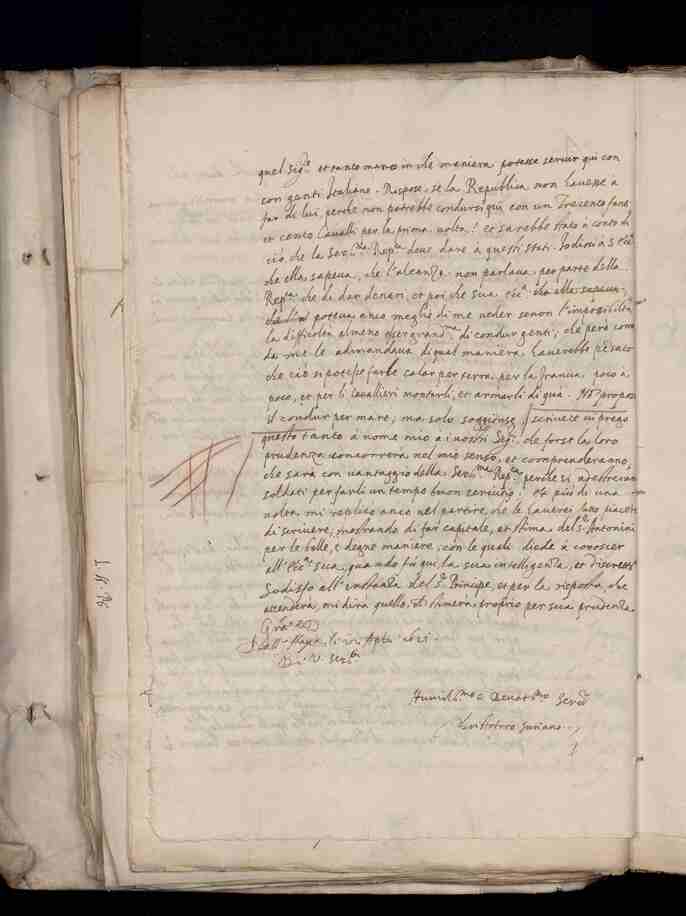 quel Sigr. et tanto manco in che maniera potesse servir qui con
con genti Italiane. Rispose, se la Republica non havesse a
far di lui, perche non potrebbe condursi qui con un Trecento fanti
et cento Cavalli per la prima volta? et sarebbe stato à conto di
ciò, che la Serma. Repca. deve dare à questi stati. Io dissi à S. Ecca.
che ella sapeva, che l'aleanza non parlava per parte della
Repca. che di dar denari, et poi che sua Ecca. che ella sapeva,
poteva anco meglio di me veder se non l'impossibilità
la difficoltà almeno esser grandma. di condur genti; che però
le adimandava di qual maniera haverebbe pensato
che ciò si potesse farle calar per terra per la Francia poco à
poco, et per li Cavallieri montarli, et armarli di quà. propose
il condur per mare; ma solo soggionse, scrivete vi prego
questo tanto à nome mio a i nostri Segri. che forse la loro
prudenza concorrerà nel mio senso, et comprenderanno,
che sarà con vantaggio della Serma. Repca. perche si
soldati per farli un tempo buon servitio. Et più di una
volta mi replicò anco nel partire, che le haverei fatto piacere
di scrivere, mostrando di far capitale, et stima del Sr. Antonini
per le belle, et degne maniere, con le quali diede à conoscer
all'Ecca. sua, quando fù qui, la sua intelligenza, et
Sodisfo all'instanza del Sr. Principe, et per la risposta, che
attenderà, mi dirà quello, stimerà proprio per sua prudenza.
Gratie
Dall'Haya li
Di V. Sertà.
Humilissmo. e Devotismo. Servre.
Christoforo Suriano